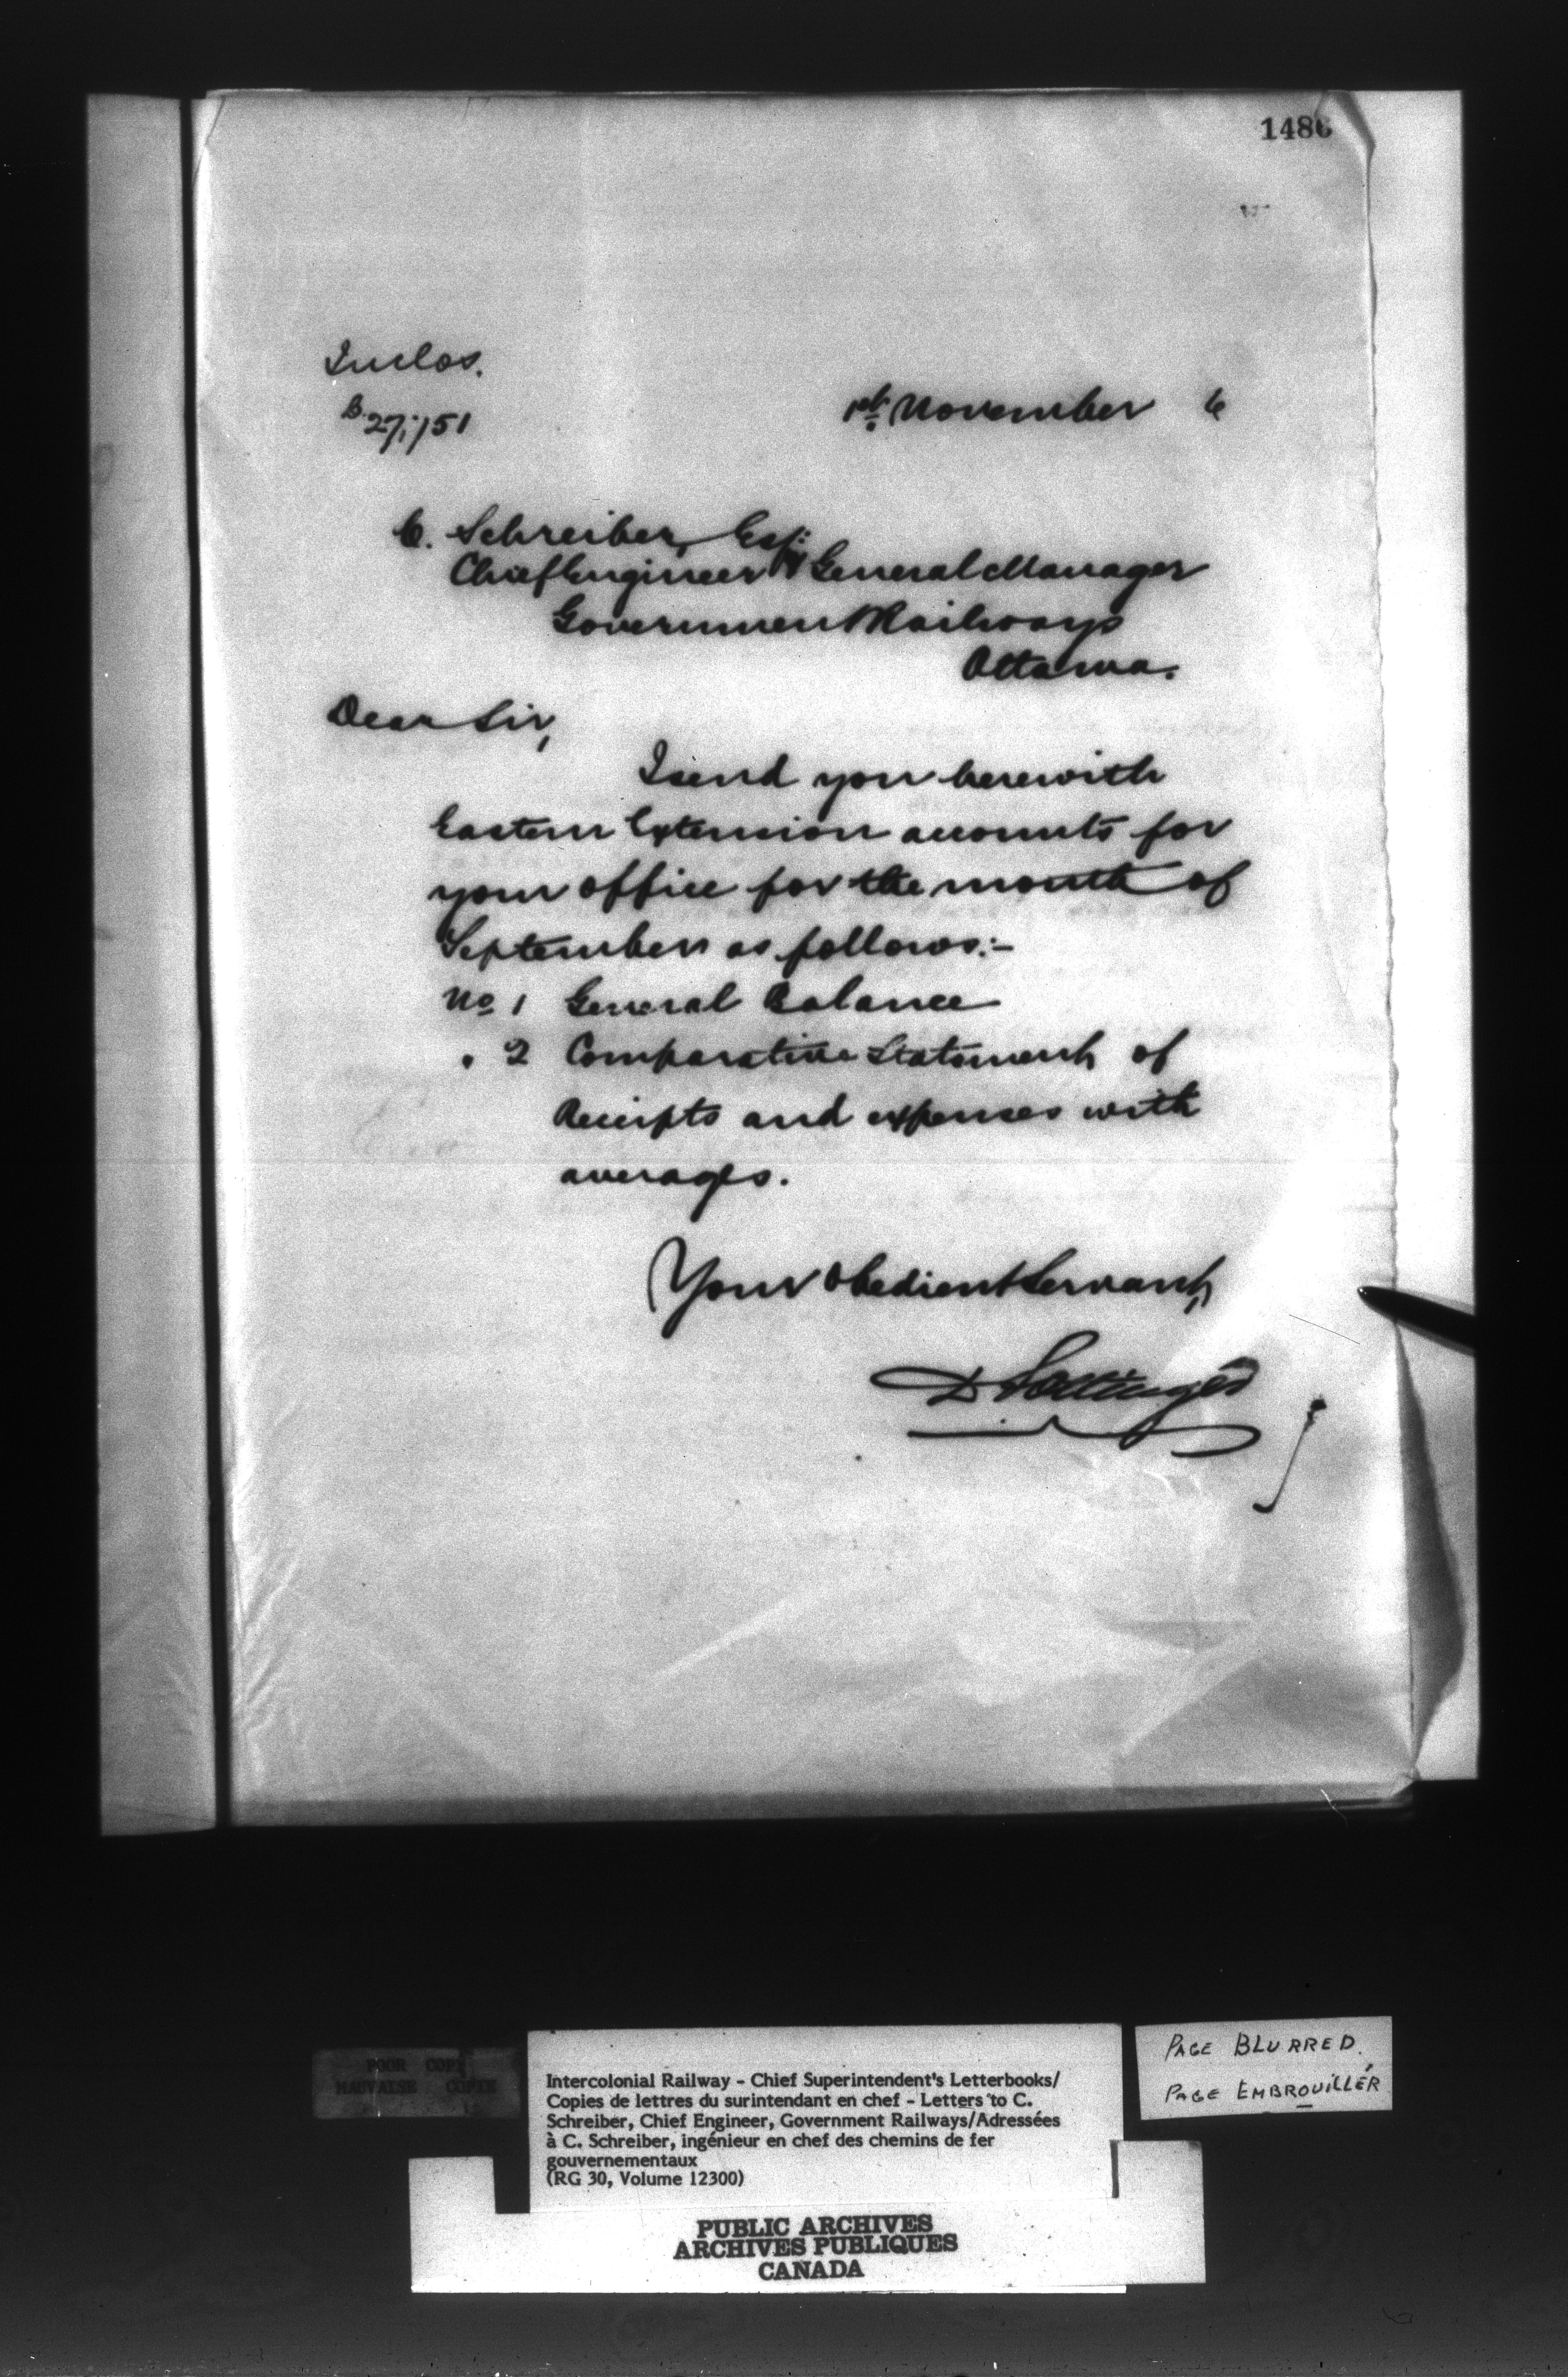 1486
Inclos.
B. 27,151
1st November 6
C. Schreiber, Esq:
Chief Engineer & General Manager
Government Railways
Ottawa.
Dear Sir,
I send you herewith
Eastern Extension accounts for
your office for the month of
September as follows:-
No 1 General Balance
" 2 Comparative Statement of
Receipts and expenses with
averages.
Your Obedient Servant,
D Pottinger
POOR COPY
MAUVAISE COPIE
Intercolonial Railway - Chief Superintendent's Letterbooks/
Copies de lettres du surintendant en chef - Letters to C.
Schreiber, Chief Engineer, Government Railways/Adressées
à C. Schreiber, ingénieur en chef des chemins de fer
gouvernementaux
(RG 30, Volume 12300)
PAGE BLURRED.
PAGE EMBROUILLÉR
PUBLIC ARCHIVES
ARCHIVES PUBLIQUES
CANADA